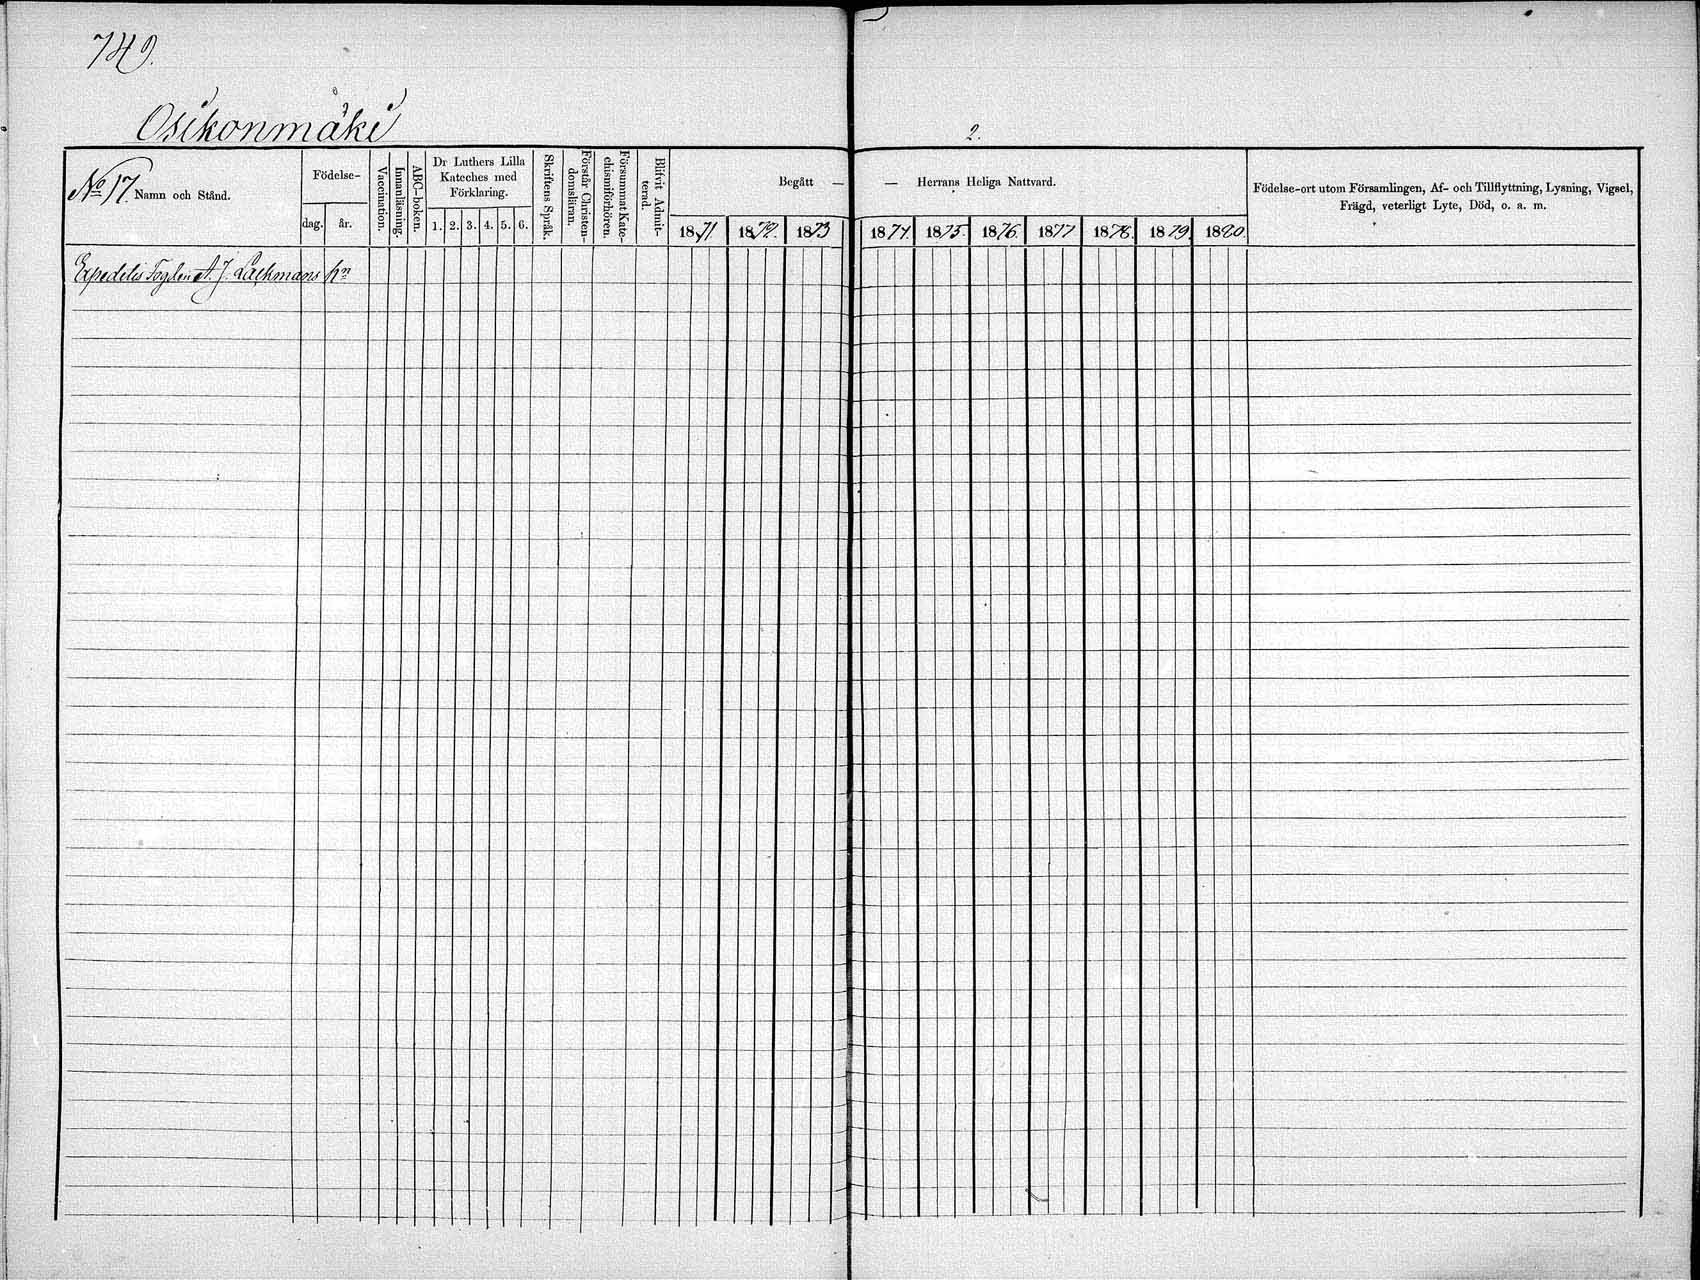 749.
Osikonmäki
2.
No 17 Namn och Stånd.
Födelse-
dag. år.
Vaccination.
Innanläsning.
ABC-boken.
Dr Luthers Lilla
Kateches med
Förklaring.
1. 2. 3. 4. 5. 6.
Skriftens Språk.
Förstår Christen-
domsläran.
Försummat Kate-
chismiförhören.
Blifvit Admit-
terad.
Begått — — Herrans Heliga Nattvard.
1871 1872. 1873 1874. 1875. 1876. 1877 1878. 1879. 1880.
Födelse-ort utom Församlingen, Af- och Tillflyttning, Lysning, Vigsel,
Frägd, veterligt Lyte, Död, o. a. m.
A. J. Lackmans hn